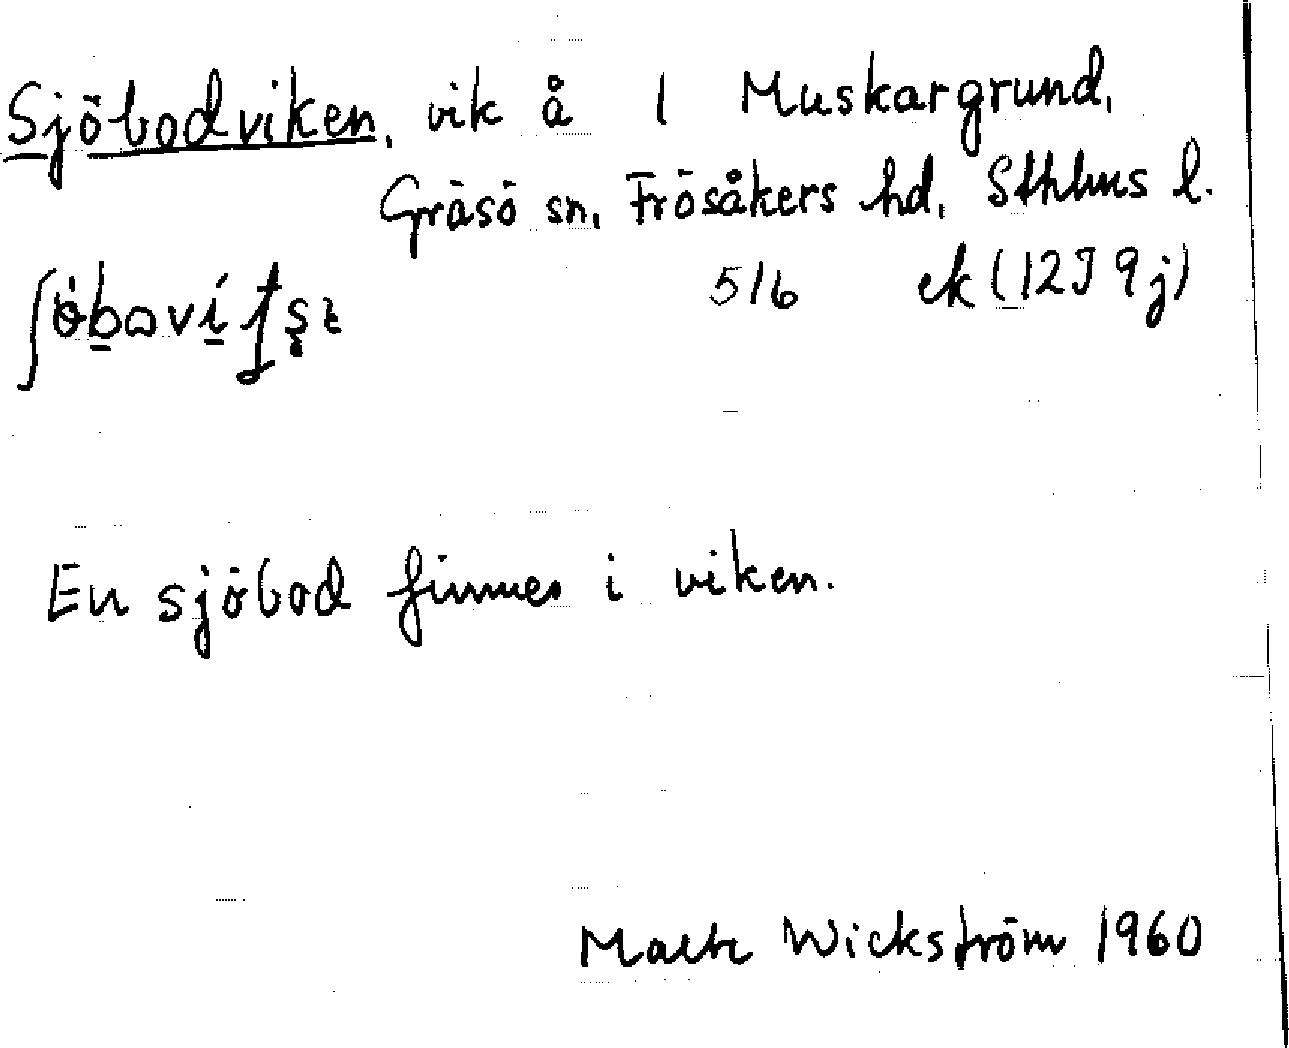 Sjöbodviken, vik å 1 Muskargrund,
Gräsö sn, Frösåkers hd, Sthlms l.
516 ek (12I 9j)
En sjöbod finnes i viken.
Malte Wickström 1960